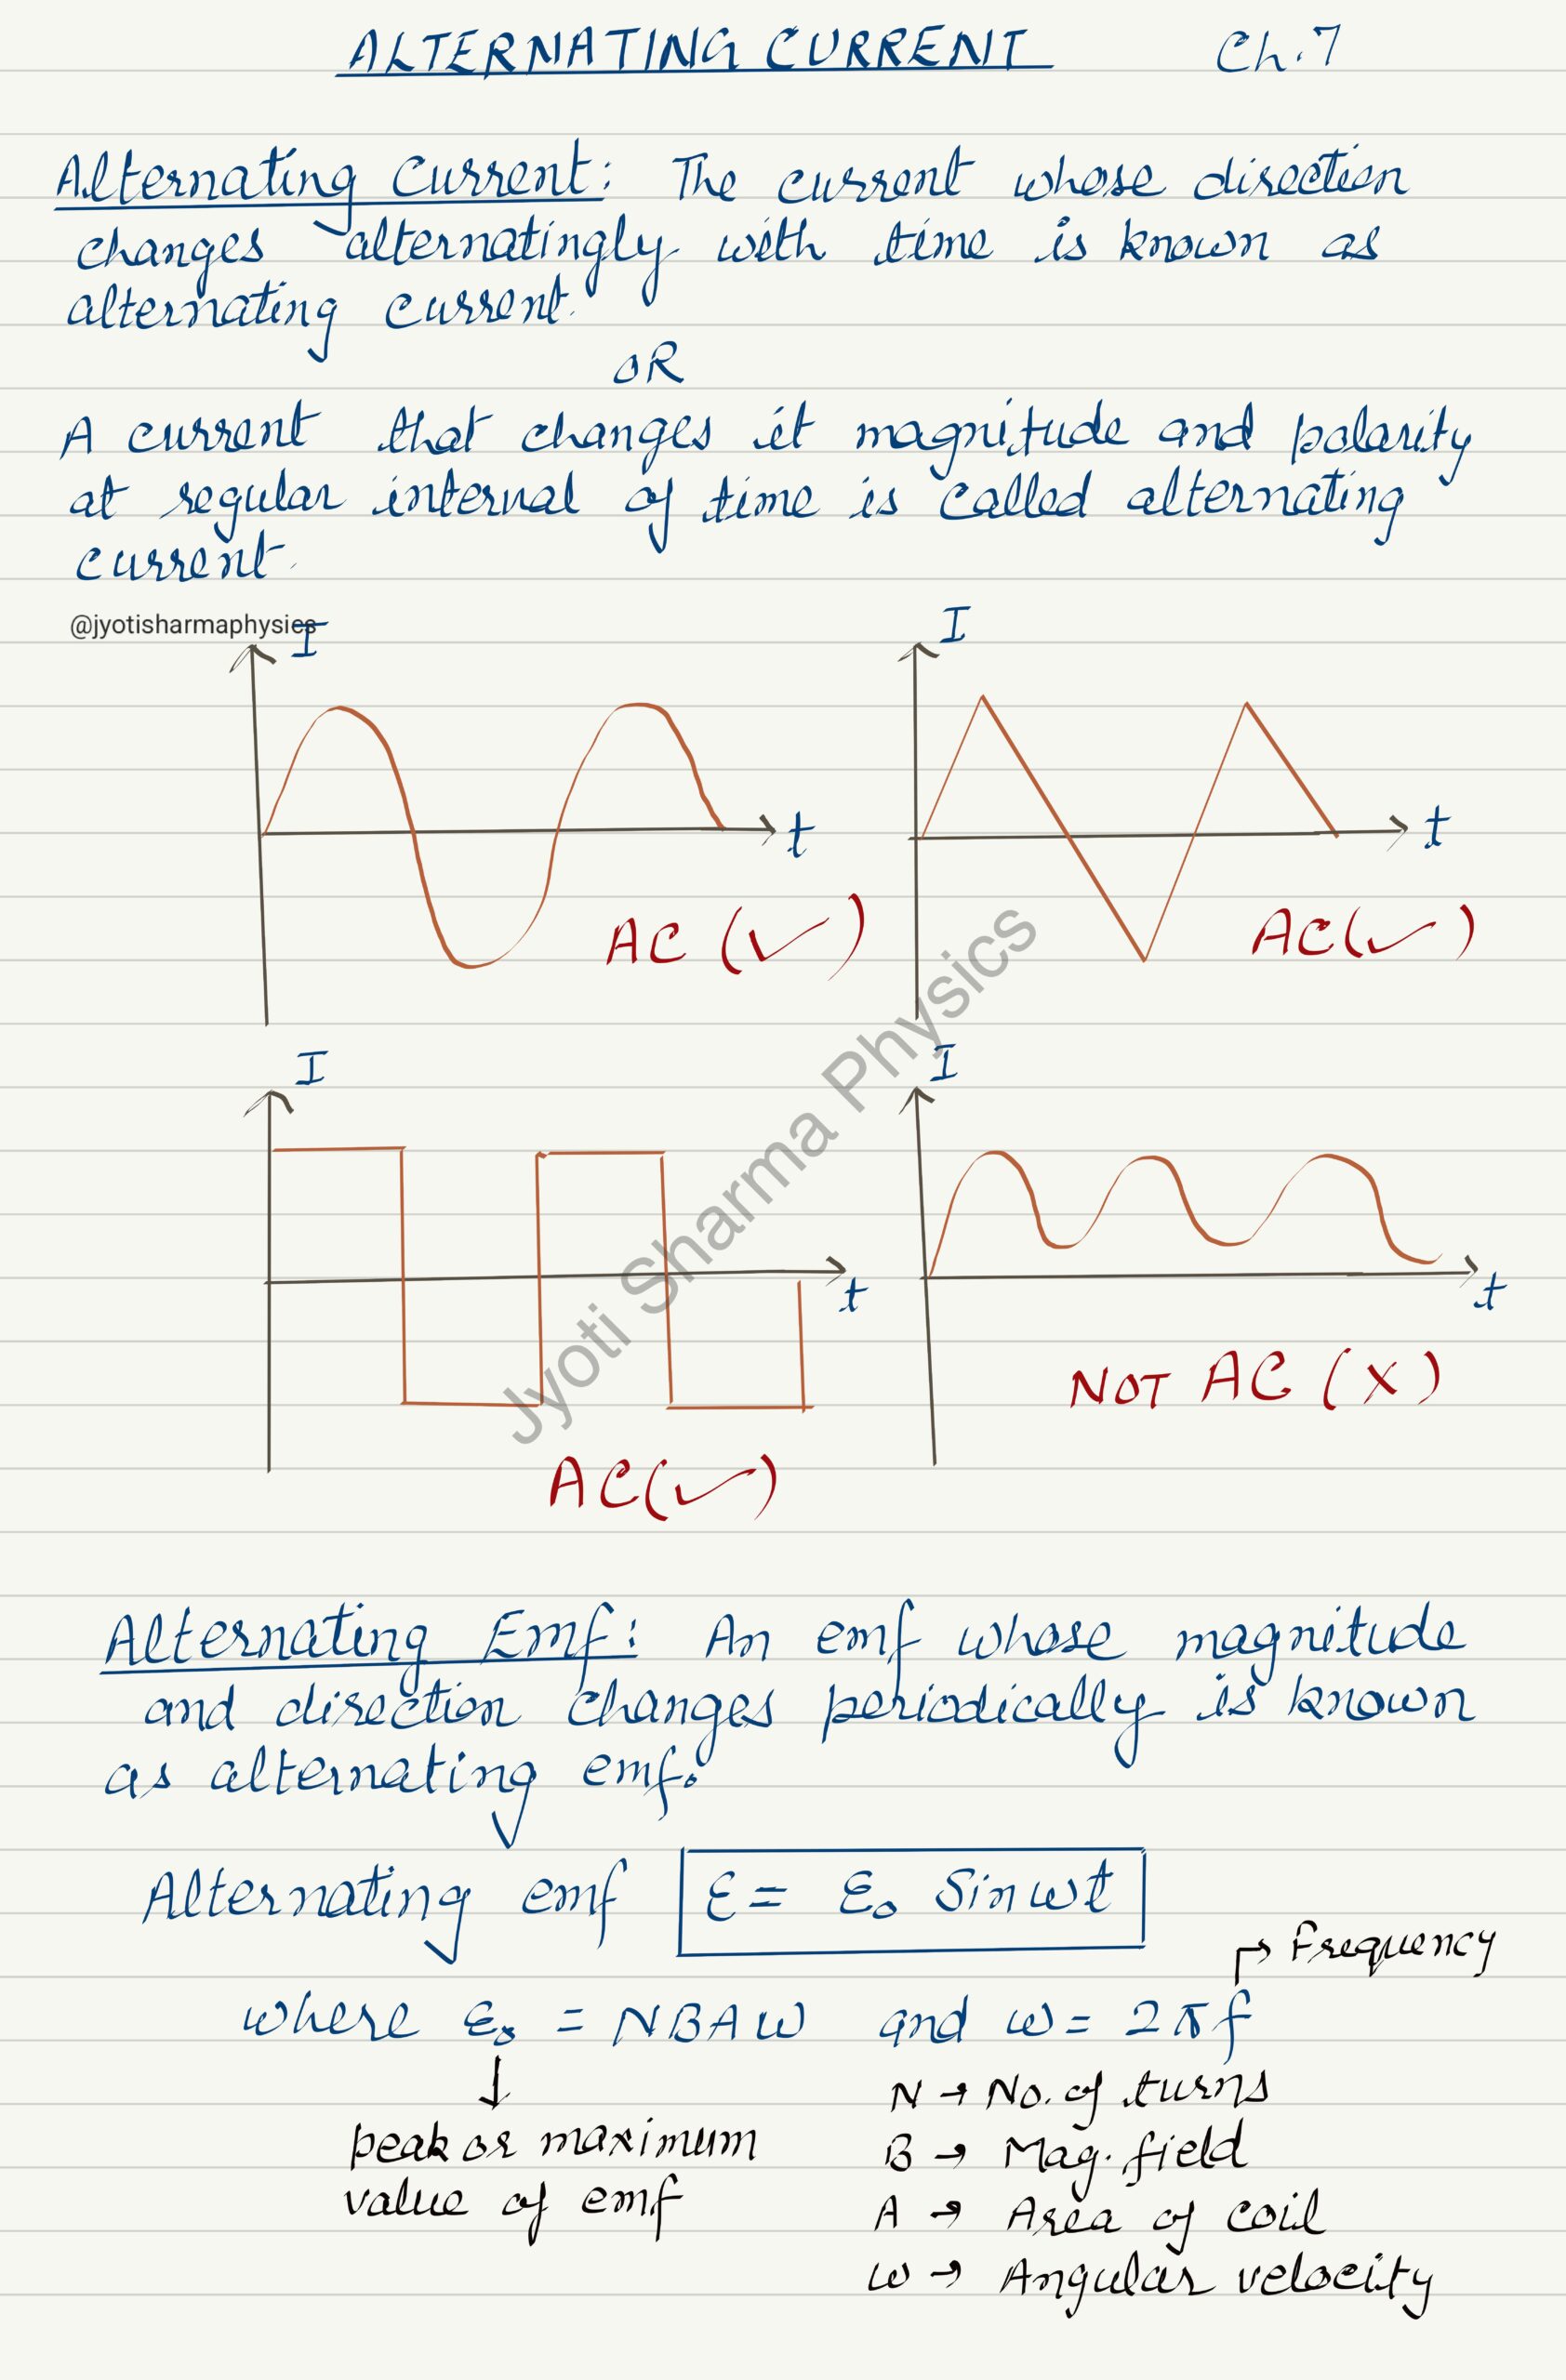 ALTERNATING CURRENT Ch.7
Alternating Current: The current whose direction
changes alternatingly with time is known as
alternating current.
OR
A current that changes it magnitude and polarity
at regular interval of time is called alternating
current.
@jyotisharmaphysics
I
I
t
t
AC (✓)
AC(✓)
I
I
t
t
NOT AC (X)
AC(✓)
Jyoti Sharma Physics
Alternating Emf: An emf whose magnitude
and direction changes periodically is known
as alternating emf.
Alternating emf ε = ε₀ Sin ωt
→ Frequency
where ε₀ = NBAω and ω = 2πf
↓
peak or maximum
value of emf
N → No. of turns
B → Mag. field
A → Area of coil
ω → Angular velocity